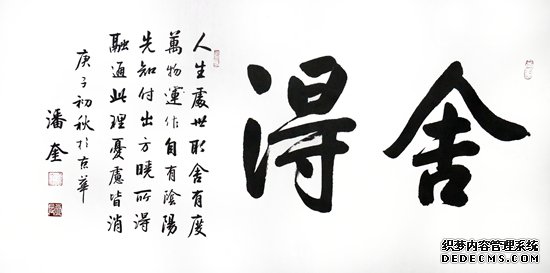 舍得
人生處世取舍有度
萬物運作自有陰陽
先知付出方曉所得
融通此理憂慮皆消
庚子初秋於京華
潘奎
织梦内容管理系统
DEDECMS.COM